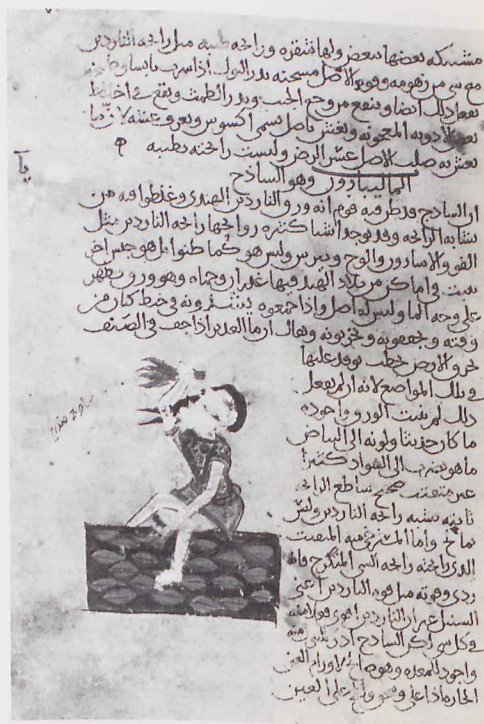 مشتبكه بعضها ببعض ولها شقره ورائحه طيبه مثل رائحه الناردين
مع شى من زهومه وقوه الاصل مسخنه يدر البول اذا شرب يابسا وطبيخه
يفعل ذلك ايضا وينفع من وجع الجنب ويدر الطمث ويقع فى اخلاط
بعض الادويه المعجونه ويغش باصل يسمى اكسوس ويعرف غشه لانه
يعثر به صلب الاصل عسر الرض وليست رائحته بطيبه
يآ
الماليبارون وهو الساذج
ان الساذج قد ظن فيه قوم انه ورق الناردين الهندى وغلطوا فيه من
تشابه الرائحه وقد يوجد اشيا كثيره روائحها رائحه الناردين مثل
الفو والاسارون والوج وليس هو كما ظنوا بل هو جنس اخر
ينبت فى اماكن من بلاد الهند فيها غدران وحماه وهو ورق يظهر
على وجه الما وليس له اصل واذا جمعوه يشكونه فى خيط كتان من
وقته ويجففونه ويخزنونه ويقال ان ما الغدير اذا جف فى الصيف
تحرق الارض بحطب يوقد عليها
فى تلك المواضع لانه ان لم يفعل
ذلك لم ينبت الورق واجوده
ما كان حديثا ولونه الى البياض
ما هو يضرب الى السواد كثيرا
غير متفتت صحيح ساطع الرائحه
ثابته تشبه رائحه الناردين وليس
بمالح واما المسترخى منه المتفتت
الذى رائحته رائحه الشى المتكرج فانه
ردى وقوته مثل قوه الناردين اعنى
السنبل غير ان الناردين اقوى فعلا منه
وكل شى لكن الساذج ادر للبول منه
واجود للمعده وهو صالح لاورام العين
الحاره اذا غلى وسحق ولطخ على العين
ساذج هندى